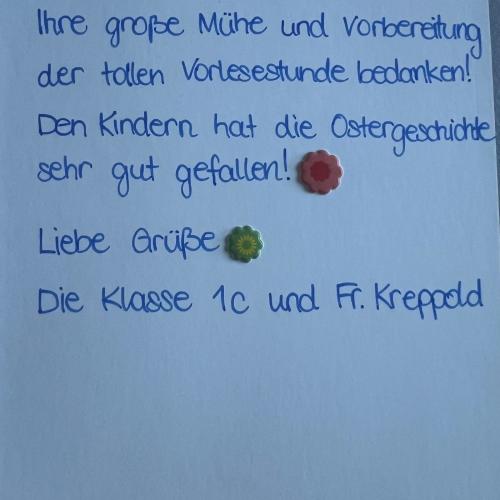 Ihre große Mühe und Vorbereitung
der tollen Vorlesestunde bedanken!
Den Kindern hat die Ostergeschichte
sehr gut gefallen!
Liebe Grüße
Die Klasse 1c und Fr. Kreppold